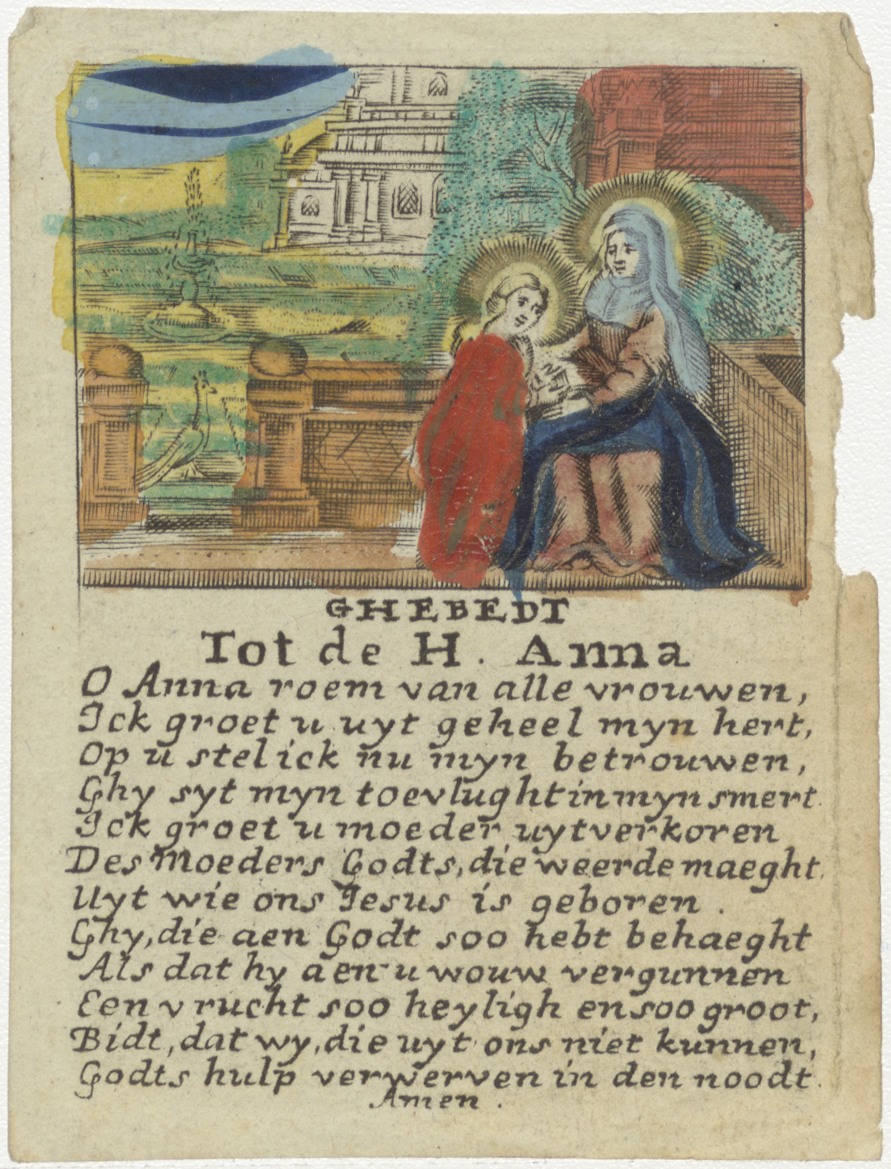 GHEBEDT
Tot de H. Anna
O Anna roem van alle vrouwen,
Ick groet u uyt geheel myn hert,
Op u stel ick nu myn betrouwen,
Ghy syt myn toevlught in myn smert.
Ick groet u moeder uytverkoren
Des Moeders Godts, die weerde maeght.
Uyt wie ons Jesus is geboren.
Ghy, die aen Godt soo hebt behaeght
Als dat hy aen u wouw vergunnen
Een vrucht soo heyligh en soo groot,
Bidt, dat wy, die uyt ons niet kunnen,
Godts hulp verwerven in den noodt.
Amen.